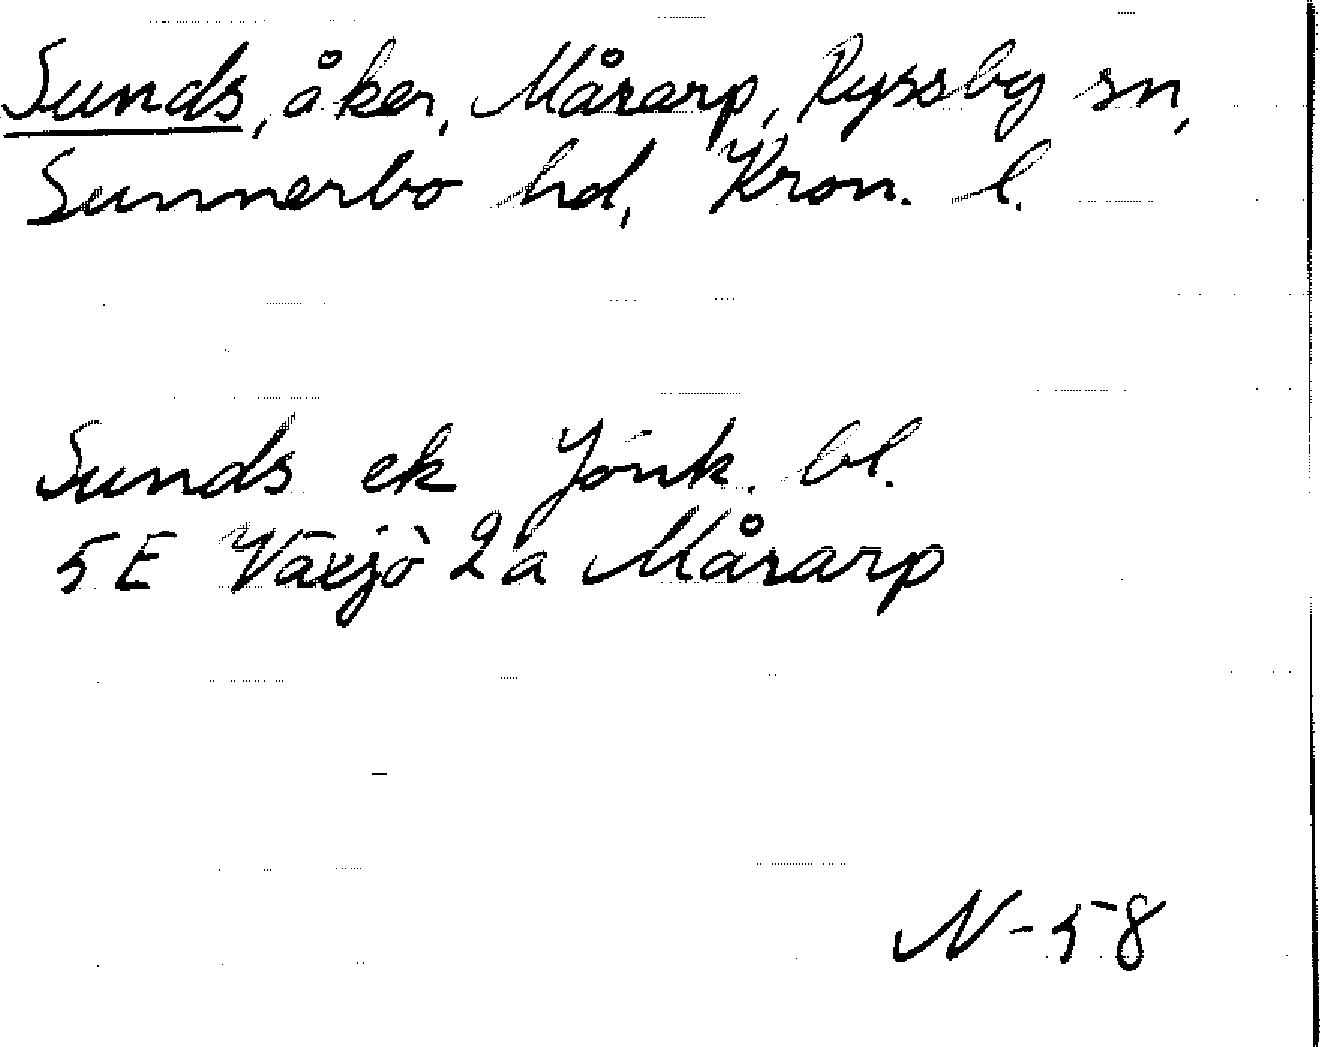 Sunds, åker, Mårarp, Ryssby sn,
Sunnerbo hd, Kron. l.
Sunds ek Jönk. bl.
5E Växjö 2a Mårarp
N-58